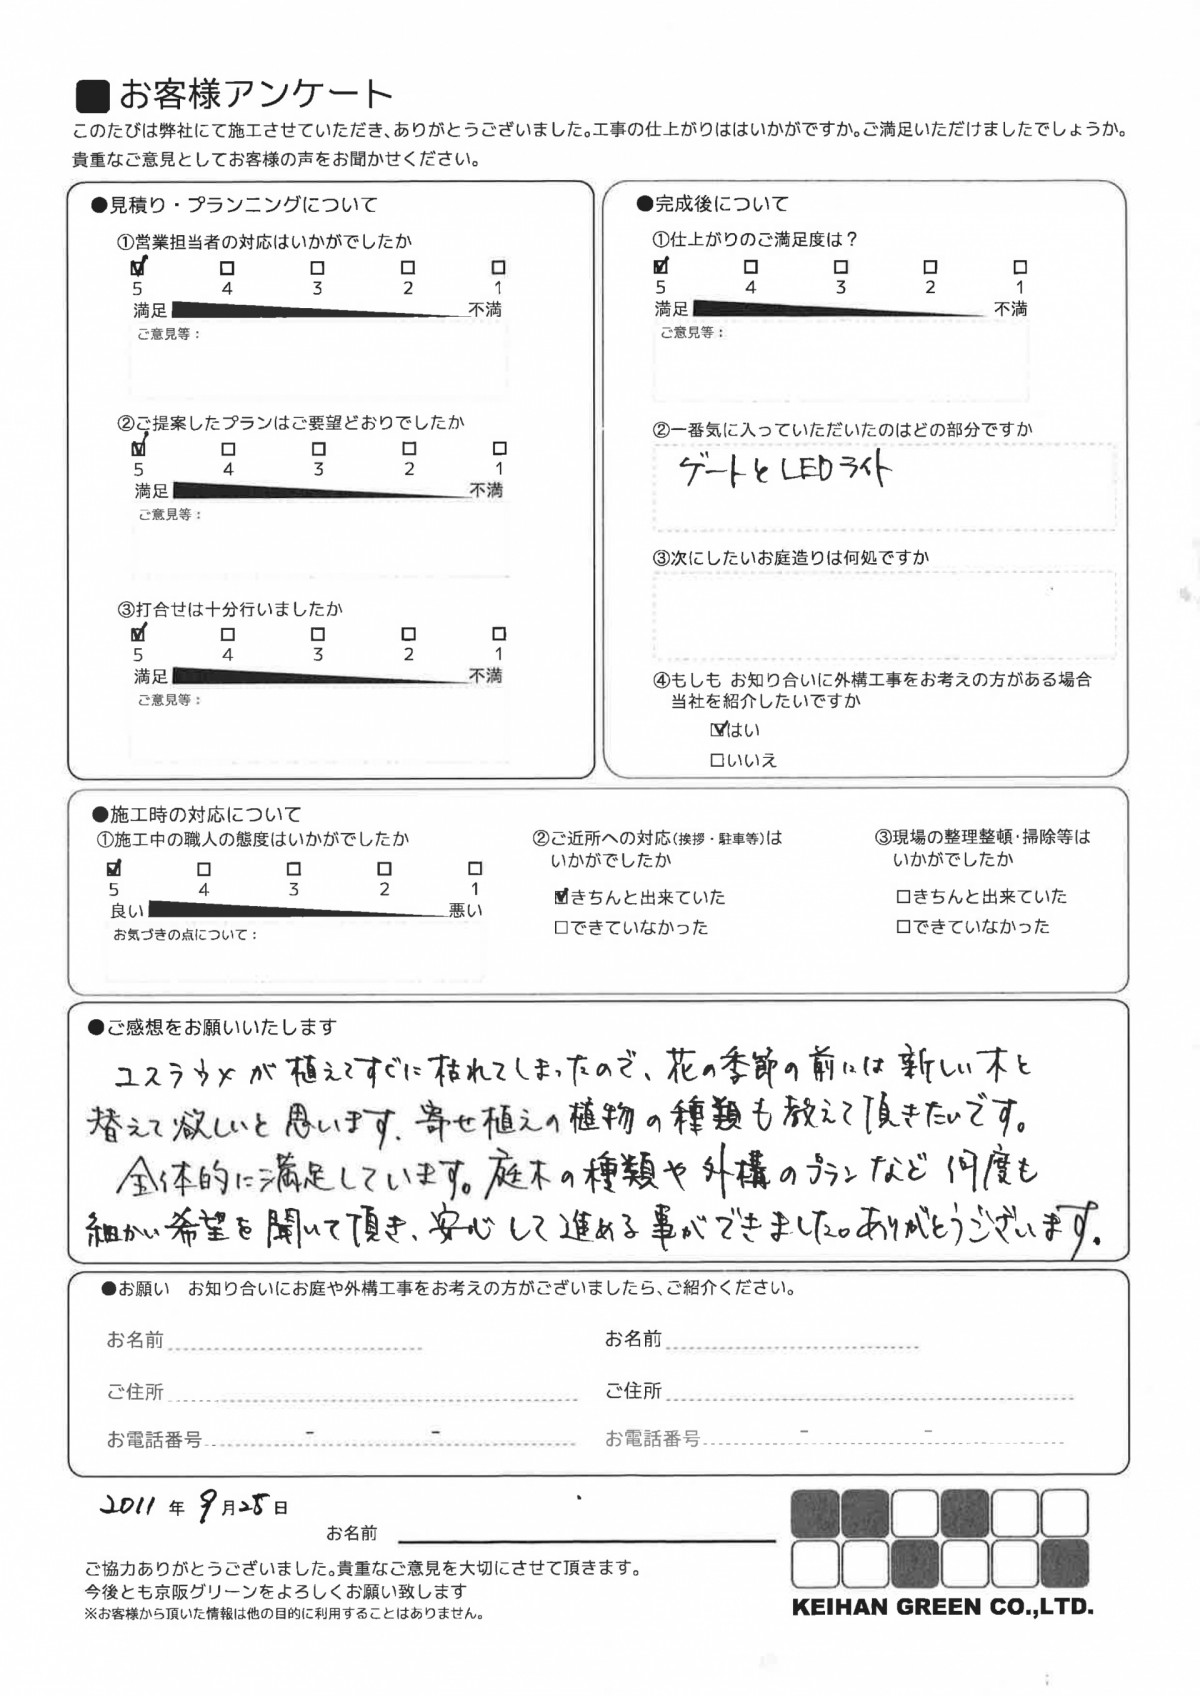 ■お客様アンケート
このたびは弊社にて施工させていただき、ありがとうございました。工事の仕上がりははいかがですか。ご満足いただけましたでしょうか。
貴重なご意見としてお客様の声をお聞かせください。
●見積り・プランニングについて
①営業担当者の対応はいかがでしたか
☑ □ □ □ □
5 4 3 2 1
満足 不満
ご意見等:
②ご提案したプランはご要望どおりでしたか
☑ □ □ □ □
5 4 3 2 1
満足 不満
ご意見等:
③打合せは十分行いましたか
☑ □ □ □ □
5 4 3 2 1
満足 不満
ご意見等:
●完成後について
①仕上がりのご満足度は?
☑ □ □ □ □
5 4 3 2 1
満足 不満
ご意見等:
②一番気に入っていただいたのはどの部分ですか
ゲートとLEDライト
③次にしたいお庭造りは何処ですか
④もしも お知り合いに外構工事をお考えの方がある場合
当社を紹介したいですか
☑はい
□いいえ
●施工時の対応について
①施工中の職人の態度はいかがでしたか
☑ □ □ □ □
5 4 3 2 1
良い 悪い
お気づきの点について:
②ご近所への対応(挨拶・駐車等)は
いかがでしたか
☑きちんと出来ていた
□できていなかった
③現場の整理整頓・掃除等は
いかがでしたか
□きちんと出来ていた
□できていなかった
●ご感想をお願いいたします
ユスラウメが植えてすぐに枯れてしまったので、花の季節の前には新しい木と
替えて欲しいと思います。寄せ植えの植物の種類も教えて頂きたいです。
全体的に満足しています。庭木の種類や外構のプランなど何度も
細かい希望を聞いて頂き、安心して進める事ができました。ありがとうございます。
●お願い お知り合いにお庭や外構工事をお考えの方がございましたら、ご紹介ください。
お名前
ご住所
お電話番号 - -
お名前
ご住所
お電話番号 - -
2011年9月25日
お名前
ご協力ありがとうございました。貴重なご意見を大切にさせて頂きます。
今後とも京阪グリーンをよろしくお願い致します
※お客様から頂いた情報は他の目的に利用することはありません。
KEIHAN GREEN CO.,LTD.